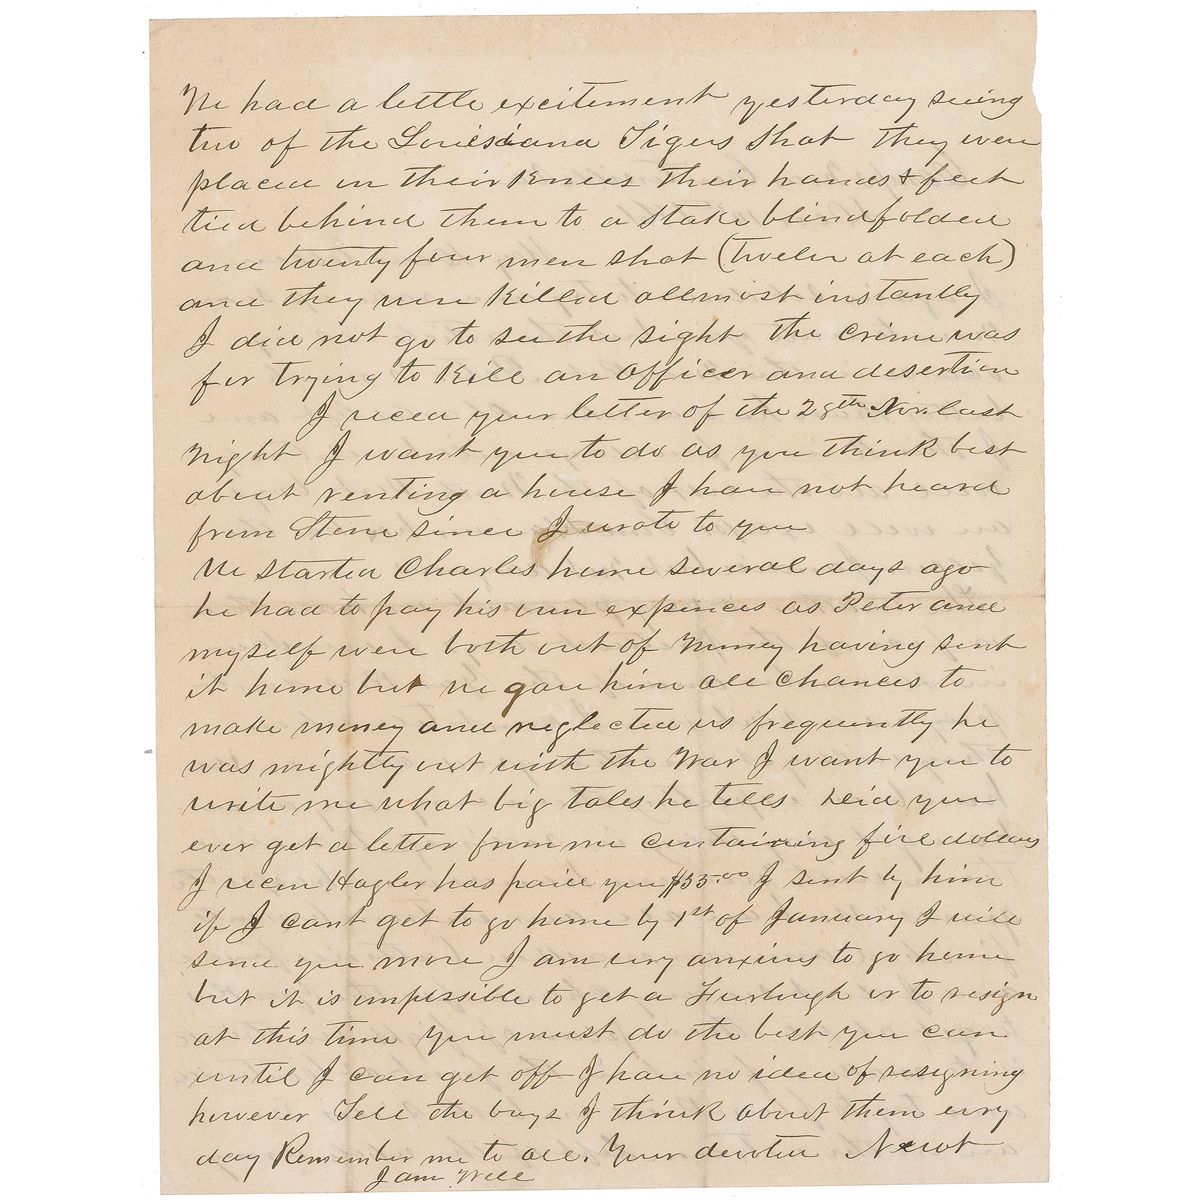 We had a little excitement yesterday seeing
two of the Louisiana Tigers shot they were
placed on their Knees their hands & feet
tied behind them to a stake blindfolded
and twenty four men shot (twelve at each)
and they were Killed allmost instantly
I did not go to see the sight the crime was
for trying to Kill an Officer and desertion
I recd your letter of the 28th Nov last
night I want you to do as you think best
about renting a house I have not heard
from Stone since I wrote to you
We started Charles home several days ago
he had to pay his own expences as Peter and
myself were both out of money having sent
it home but we gave him all chances to
make money and neglected us frequently he
was mightly out with the War I want you to
write me what big tales he tells Did you
ever get a letter from me containing five dollars
I recon Hagler has paid you $35.00 I sent by him
if I cant get to go home by 1st of January I will
send you more I am very anxious to go home
but it is impossible to get a Furlough or to resign
at this time You must do the best you can
until I can get off I have no idea of resigning
however Tell the boys I think about them every
day Remember me to all. Your devoted Newt
I am Well